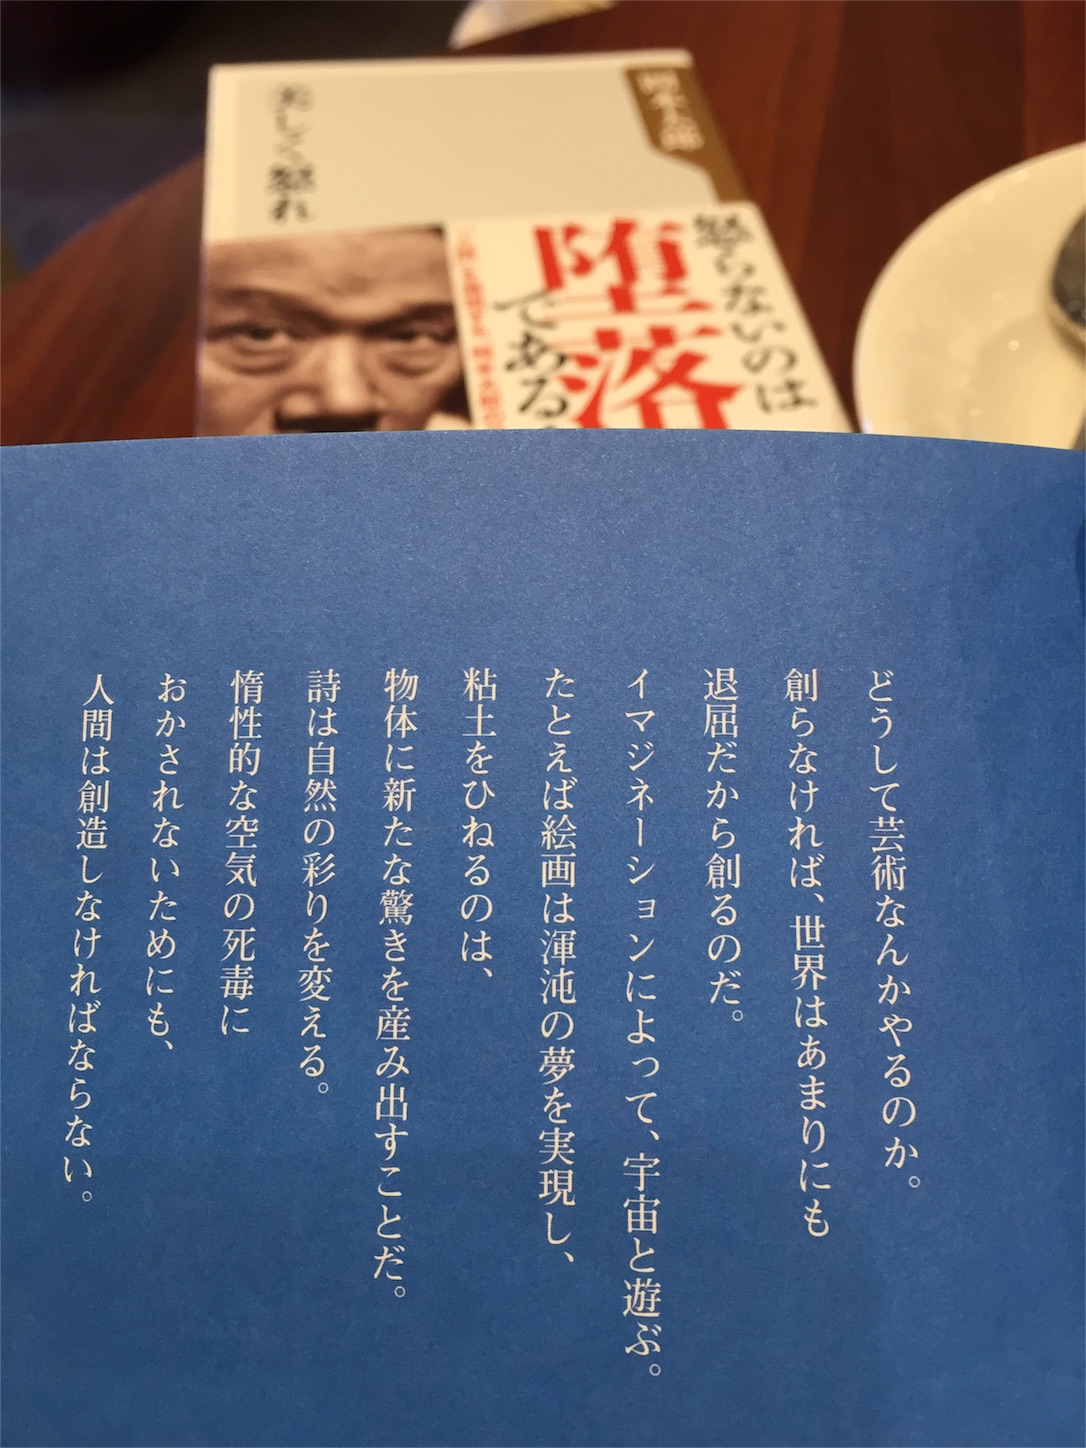 岡本太郎
美しく怒れ
怒らないのは
堕落
である
どうして芸術なんかやるのか。
創らなければ、世界はあまりにも
退屈だから創るのだ。
イマジネーションによって、宇宙と遊ぶ。
たとえば絵画は渾沌の夢を実現し、
粘土をひねるのは、
物体に新たな驚きを産み出すことだ。
詩は自然の彩りを変える。
惰性的な空気の死毒に
おかされないためにも、
人間は創造しなければならない。